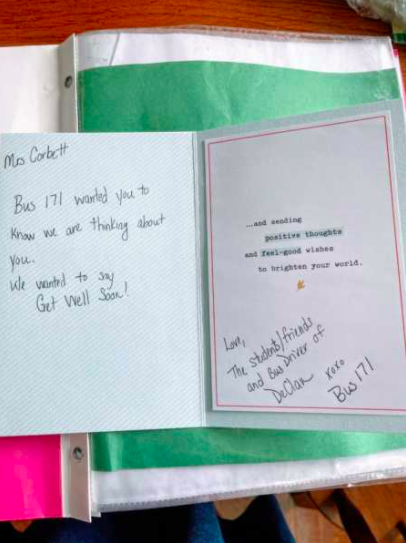 Mrs Corbett
Bus 171 wanted you to
know we are thinking about
you.
We wanted to say
Get Well Soon!
...and sending
positive thoughts
and feel-good wishes
to brighten your world.
Love,
The students/friends
and Bus Driver of
DeClan xoxo
Bus 171